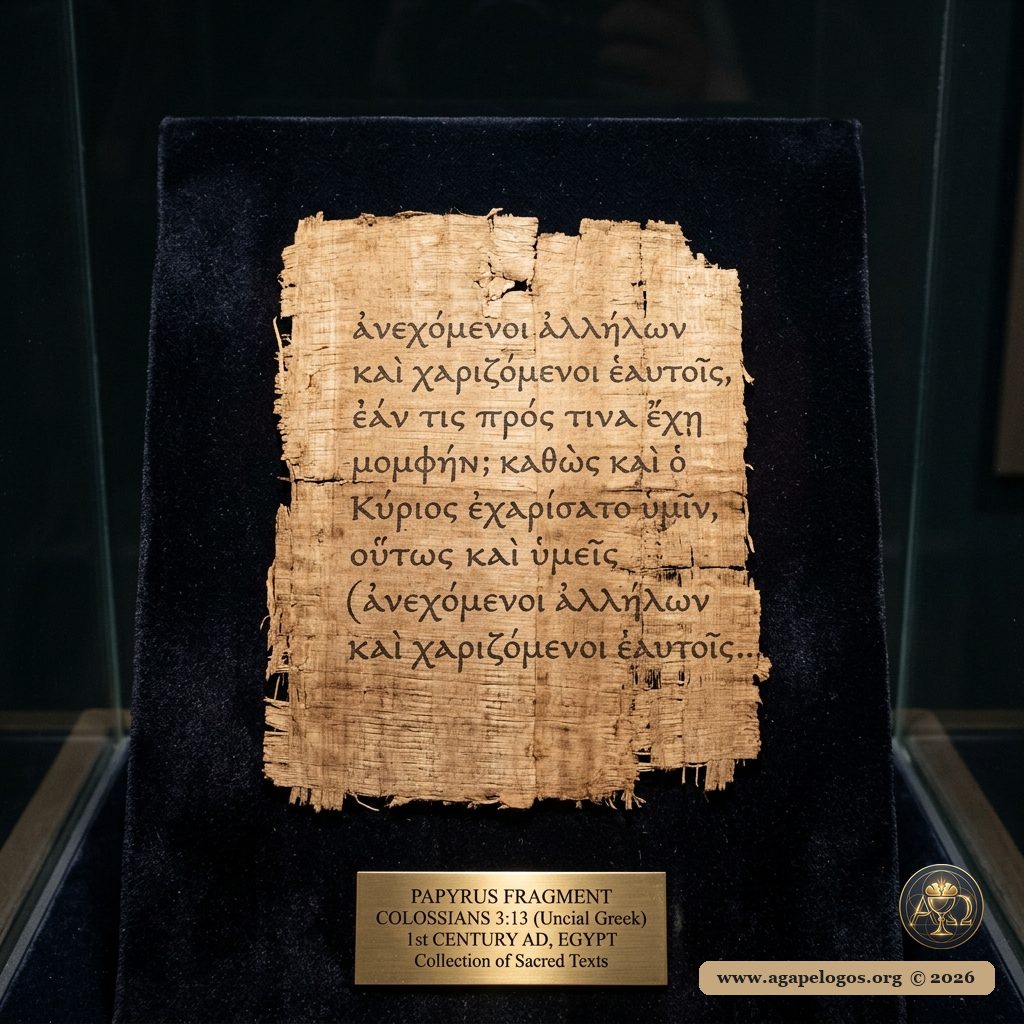 ἀνεχόμενοι ἀλλήλων
καὶ χαριζόμενοι ἑαυτοῖς,
ἐάν τις πρός τινα ἔχῃ
μομφήν; καθὼς καὶ ὁ
Κύριος ἐχαρίσατο ὑμῖν,
οὕτως καὶ ὑμεῖς
(ἀνεχόμενοι ἀλλήλων
καὶ χαριζόμενοι ἑαυτοῖς...
PAPYRUS FRAGMENT
COLOSSIANS 3:13 (Uncial Greek)
1st CENTURY AD, EGYPT
Collection of Sacred Texts
ΑΩ
www.agapelogos.org © 2026